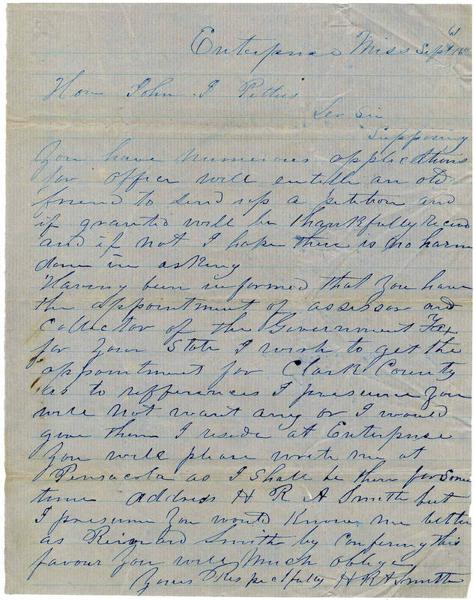 Enterprise Miss Sept 61
Hon John J Pettus
Der Sir
Supposing
You have numerous applications
for office will entitle an old
friend to send up a petition and
if granted will be thankfully
and if not I hope there is no harm
done in asking
Having been informed that you have
the appointment of assessor and
Collector of the Government Tax
for your State I wish to get the
appointment for Clark County
as to refferences I presume you
will not want any or I would
give them I reside at Enterprise
You will please write me at
Pensacola as I shall be there for some
time address H R A Smith but
I presume you would know me better
as Smith by confering this
favour you will Much oblige
Yours Respectfully H R A Smith